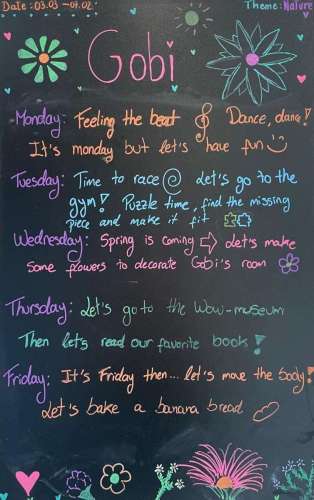 Date: 03.03 - 07.02.
Theme: Nature
Gobi
Monday: Feeling the beat Dance, dance!
It's monday but let's have fun
Tuesday: Time to race Let's go to the
gym! Puzzle time, find the missing
piece and make it fit
Wednesday: Spring is coming Let's make
some flowers to decorate Gobi's room
Thursday: Let's go to the Wow-museum
Then let's read our favorite book!
Friday: It's Friday then... let's move the body!
Let's bake a banana bread